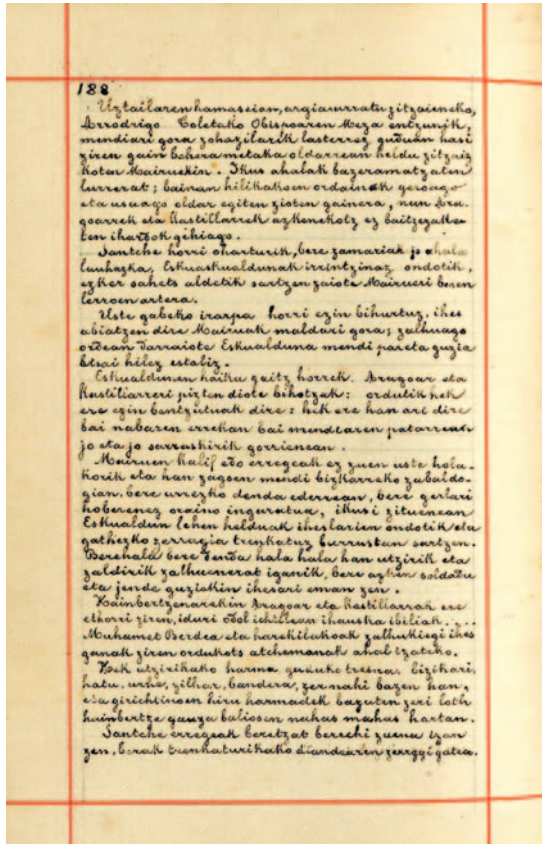 188
Uztailaren hamaseian, argia urratu zitzaieneko,
Arrodrigo Toletako Obispoaren Meza entzunik,
mendiari gora zohazilarik lasterrez guduan hasi
ziren gain behera metaka oldarrean heldu zitzaiz
koten Mairuekin. Ikus ahalak bazeramatzaten
lurrerat; bainan hilikakoen ordainak geroago
eta usuago oldar egiten zioten gainera, nun Ara-
goarrek eta Kastillarrek azkenekotz ez baitzezake-
ten ihardok gehiago.
Santche horri oharturik, bere zamariak jo ahala
lauhazka, Eskuaskualdunak irrintzinaz ondotik,
ezker sahets aldetik sartzen zaiote Mairueri beren
lerroen artera.
Uste gabeko irarpa horri ezin bihurtuz, ihes
abiatzen dire Mairuak maldari gora; zalhuago
ordean darraiote Eskualduna mendi pareta guzia
etsai hilez estaliz.
Eskualdunen haika gaitz horrek, Aragoar eta
Kastillarreri pizten diote bihotzak: ordutik hek
ere egin bentzutuak dire: hek ere han ari dire
bai nabaren errekan bai mendiaren patarrean
jo eta jo sarraskirik gorrienean.
Mairuen Kalif edo erregeak ez zuen uste hola-
korik eta han zagoen mendi bizkarreko zabaldo-
gian, bere urrezko denda ederrean, bere gerlari
hoberenez oraino inguratua, ikusi zituenean
Eskualdun lehen helduak iheslarien ondotik eta
gathezko zerragia trenkatuz burrustan sartzen.
Berehala bere denda hala hala han utzirik eta
zaldirik zalhuenerat iganik, bere azkin soldadu
eta jende guziekin ihesari eman zen.
Hainbertzenarekin Aragoar eta Kastillarrak ere
ethorri ziren, iduri odol ichilean ihauska ibiliak....
Muhamet Berdea eta harekilakoak zalhukiegi ihes
ganak ziren ordukots atchemanak ahal izateko.
Hek utzirikako harma guduko tresna, bizikari,
hatu, urhe, zilhar, bandera, zer nahi bazen han,
eta girichtinoen hiru harmadek bazuten zeri loth
hainbertze gauza baliosen nahas mahas hartan.
Santche erregeak beretzat berechi zuena izan
zen, berak trenkaturikako diandearen zerrgyi gatea.